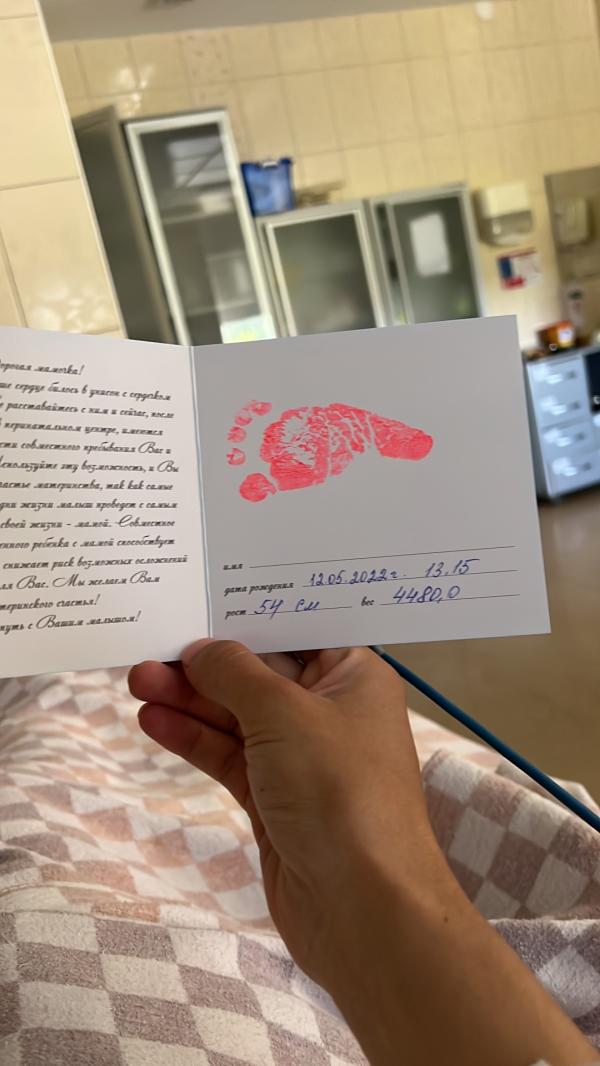 орогая мамочка!
ше сердце билось в унисон с сердечком
е расставайтесь с ним и сейчас, после
перинатальном центре, имеются
сти совместного пребывания Вас и
Используйте эту возможность, и Вы
частье материнства, так как самые
дни жизни малыш проведет с самым
своей жизни - мамой. Совместное
енного ребенка с мамой способствует
снижает риск возможных осложнений
ля Вас. Мы желаем Вам
теринского счастья!
нуть с Вашим малышом!
имя
дата рождения 12.05.2022г. 13.15
рост 54 см вес 4480,0